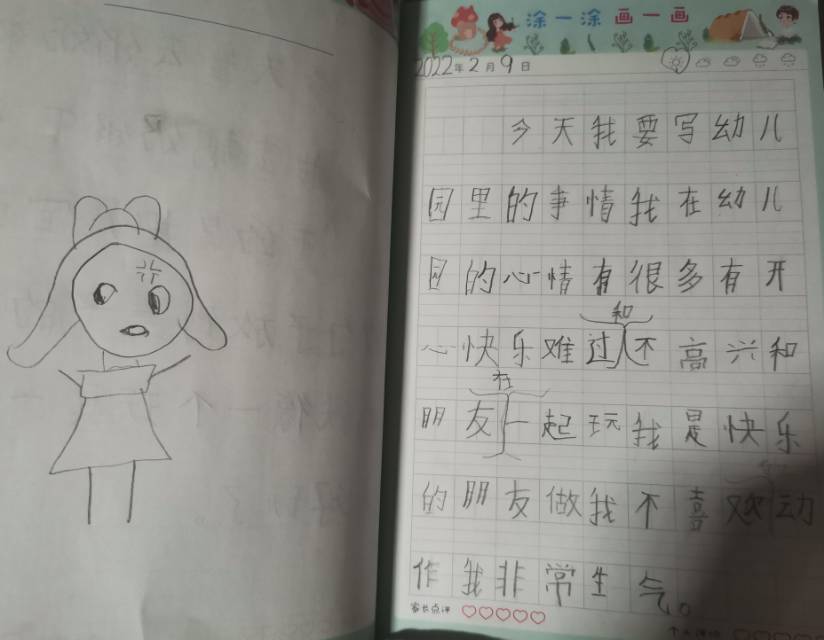 涂一涂 画一画
2022年2月9日
今天我要写幼儿
园里的事情我在幼儿
园的心情有很多有开
和
心快乐难过不高兴和
在
朋友一起玩我是快乐
的朋友做我不喜欢动
作我非常生气。
家长点评